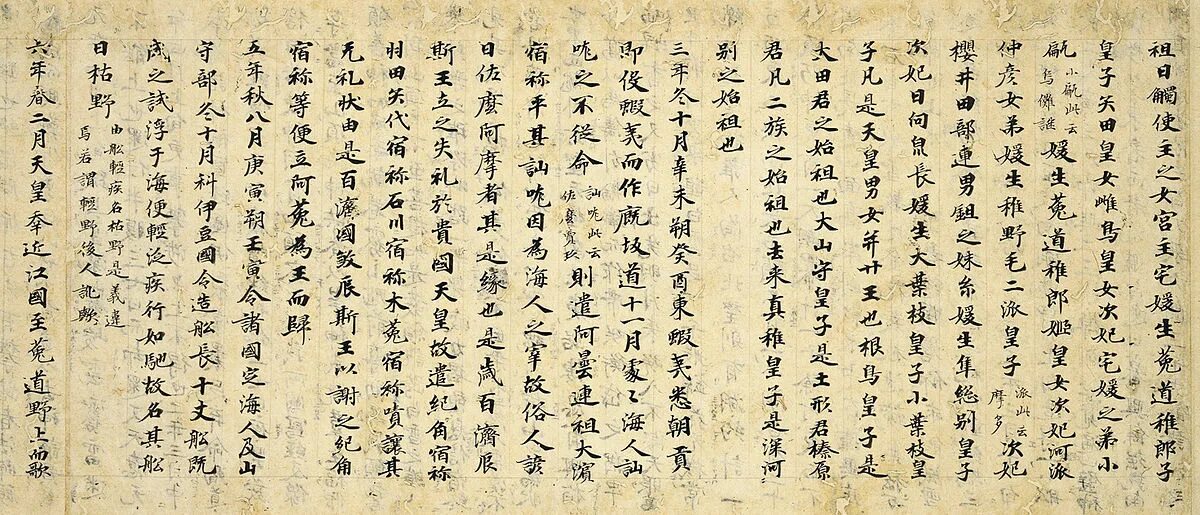 祖日觸使主之女宮主宅媛生菟道稚郎子
皇子矢田皇女雌鳥皇女次妃宅媛之弟小
甂小甂此云烏儺謎媛生菟道稚郎姫皇女次妃河派
仲彦女弟媛生稚野毛二派皇子派此云摩多次妃
櫻井田部連男鉏之妹糸媛生隼総別皇子
次妃日向泉長媛生大葉枝皇子小葉枝皇
子凡是天皇男女并廿王也根鳥皇子是
太田君之始祖也大山守皇子是土形君榛原
君凡二族之始祖也去来真稚皇子是深河
別之始祖也
三年冬十月辛未朔癸酉東蝦夷悉朝貢
即役蝦夷而作厩坂道十一月處々海人訕
哤之不從命訕哤此云佐麼賣玖則遣阿曇連祖大濱
宿祢平其訕哤因為海人之宰故俗人諺
曰佐麼阿摩者其是縁也是歳百濟辰
斯王立之失礼於貴國天皇故遣紀角宿祢
羽田矢代宿祢石川宿祢木菟宿祢嘖讓其
无礼状由是百濟國敦辰斯王以謝之紀角
宿祢等便立阿菟為王而歸
五年秋八月庚寅朔壬寅令諸國定海人及山
守部冬十月科伊豆國令造舩長十丈舩既
成之試浮于海便輕泛疾行如馳故名其舩
曰枯野由舩輕疾名枯野是義違焉若謂輕野後人訛歟
六年春二月天皇幸近江國至菟道野上而歌